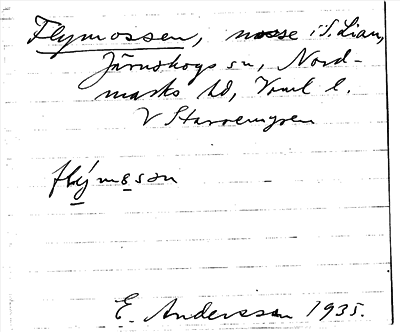 Flymossen, mosse i S. Lian,
Järnskogs sn, Nord-
marks hd, Vrml l.
V Starremyren
flý mosən
E. Andersson 1935.